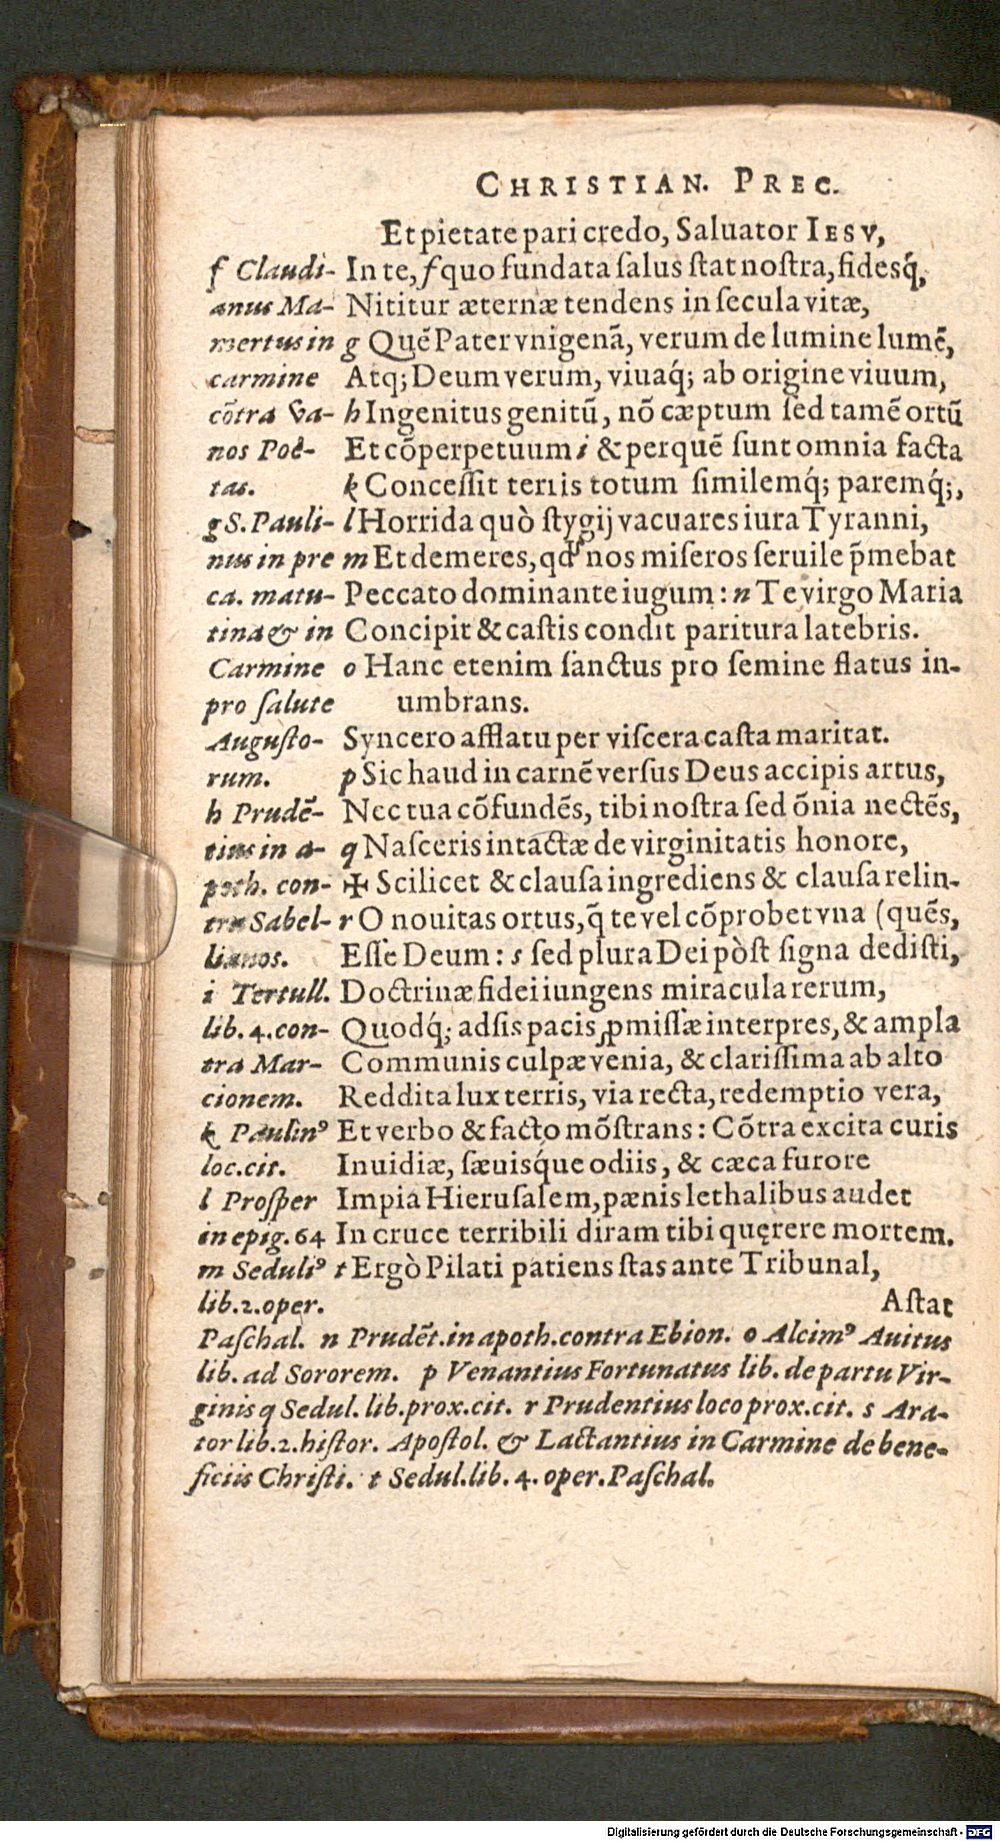 CHRISTIAN. PREC.
Et pietate pari credo, Saluator IESV,
In te, f quo fundata salus stat nostra, fidesq́;
Nititur æternæ tendens in secula vitæ,
g Quẽ Pater vnigenã, verum de lumine lumẽ,
Atq; Deum verum, viuaq́; ab origine viuum,
h Ingenitus genitũ, nõ cæptum sed tamẽ ortũ
Et cõperpetuum i & per quẽ sunt omnia facta
k Concessit terris totum similemq́; paremq́;,
l Horrida quò stygij vacuares iura Tyranni,
m Et demeres, qđ nos miseros seruile p̃mebat
Peccato dominante iugum: n Te virgo Maria
Concipit & castis condit paritura latebris.
o Hanc etenim sanctus pro semine flatus in-
umbrans.
Syncero afflatu per viscera casta maritat.
p Sic haud in carnẽ versus Deus accipis artus,
Nec tua cõfundẽs, tibi nostra sed õnia nectẽs,
q Nasceris intactæ de virginitatis honore,
✠ Scilicet & clausa ingrediens & clausa relin-
r O nouitas ortus, q̃ te vel cõprobet vna (quẽs,
Esse Deum: s sed plura Dei pòst signa dedisti,
Doctrinæ fidei iungens miracula rerum,
Quodq́; adsis pacis ꝓmissæ interpres, & ampla
Communis culpæ venia, & clarissima ab alto
Reddita lux terris, via recta, redemptio vera,
Et verbo & facto mõstrans: Cõtra excita curis
Inuidiæ, sæuisq́ue odiis, & cæca furore
Impia Hierusalem, pænis lethalibus audet
In cruce terribili diram tibi quęrere mortem.
t Ergò Pilati patiens stas ante Tribunal,
Astat
f Claudi-
anus Ma-
mertus in
carmine
cõtra Va-
nos Poë-
tas.
g S. Pauli-
nus in pre
ca. matu-
tina & in
Carmine
pro salute
Augusto-
rum.
h Prudẽ-
tius in a-
poth. con-
tra Sabel-
lianos.
i Tertull.
lib. 4. con-
tra Mar-
cionem.
k Paulinꝰ
loc. cit.
l Prosper
in epig. 64
m Seduliꝰ
lib. 2. oper.
Paschal. n Prudẽt. in apoth. contra Ebion. o Alcimꝰ Auitus
lib. ad Sororem. p Venantius Fortunatus lib. de partu Vir-
ginis q Sedul. lib. prox. cit. r Prudentius loco prox. cit. s Ara-
tor lib. 2. histor. Apostol. & Lactantius in Carmine de bene-
ficiis Christi. t Sedul. lib. 4. oper. Paschal.
Digitalisierung gefördert durch die Deutsche Forschungsgemeinschaft - DFG